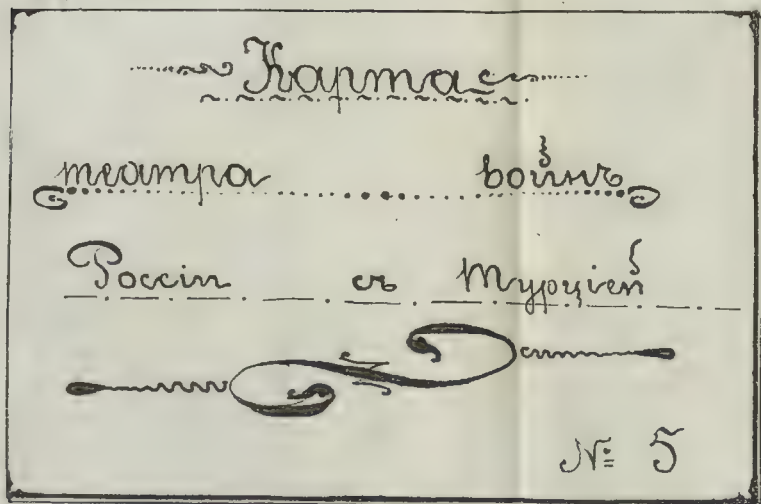 Карта
театра войнъ
Россіи съ Турціей
№ 5